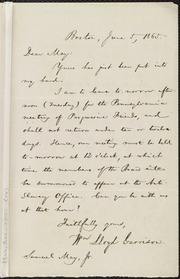 Boston, June 5, 1865.
Dear May:
Yours has just been put into
my hand.
I am to leave to-morrow after-
noon (Tuesday) for the Pennsylvania
meeting of Progressive Friends, and
shall not return under ten or twelve
days. Hence, our meeting must be held
to-morrow at 12 o'clock, at which
time the members of the Board will
be summoned to appear at the Anti-
Slavery Office. Can you be with us
at that hour?
Faithfully yours,
Wm Lloyd Garrison.
Samuel May, Jr.